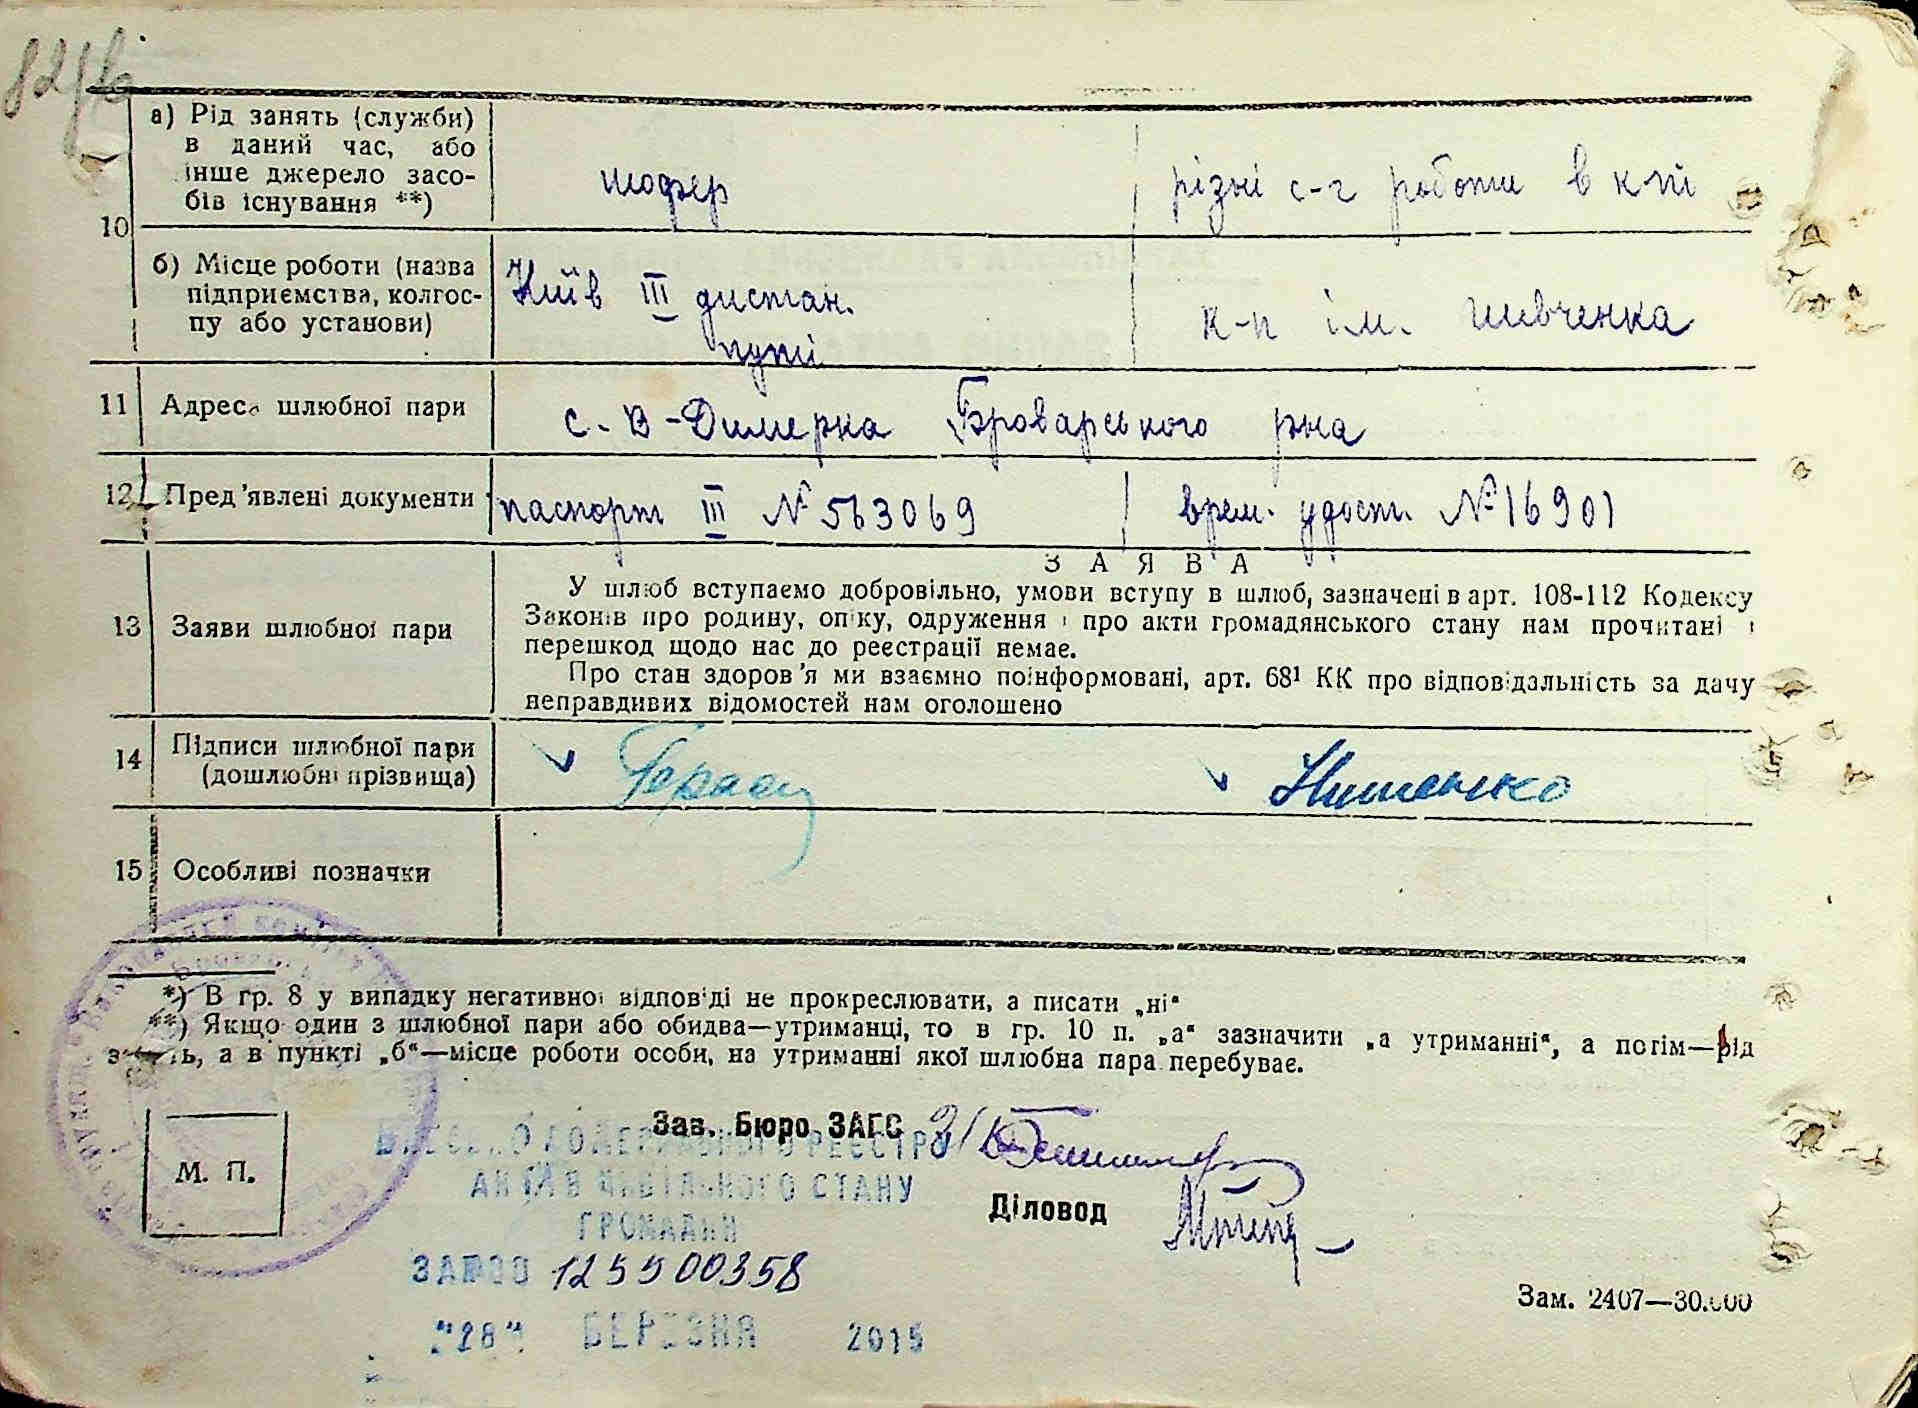 а) Рід занять (служби)
в даний час, або
інше джерело засо-
бів існування **)
шофер
різні с-г роботи в кпі
10
б) Місце роботи (назва
підприємства, колгос-
пу або установи)
Київ III дистан.
путі
к-п ім. Шевченка
11 Адреса шлюбної пари
с. В-Димерка Броварського рна
12 Пред'явлені документи
паспорт III № 563069
врем. удост. № 16901
ЗАЯВА
13 Заяви шлюбної пари
У шлюб вступаємо добровільно, умови вступу в шлюб, зазначені в арт. 108-112 Кодексу
Законів про родину, опіку, одруження і про акти громадянського стану нам прочитані і
перешкод щодо нас до реєстрації немає.
Про стан здоров'я ми взаємно поінформовані, арт. 68¹ КК про відповідальність за дачу
неправдивих відомостей нам оголошено
14 Підписи шлюбної пари
(дошлюбні прізвища)
15 Особливі позначки
*) В гр. 8 у випадку негативної відповіді не прокреслювати, а писати „ні“
**) Якщо один з шлюбної пари або обидва—утриманці, то в гр. 10 п. „а“ зазначити „а утриманні“, а потім—рід
занять, а в пункті „б“—місце роботи особи, на утриманні якої шлюбна пара перебуває.
Зав. Бюро ЗАГС
М. П.
ВНЕСЕНО ДО ДЕРЖАВНОГО РЕЄСТРУ
АКТІВ ЦИВІЛЬНОГО СТАНУ
ГРОМАДЯН
Діловод
ЗА № 00 125500358
"28" БЕРЕЗНЯ 2015
Зам. 2407—30.000